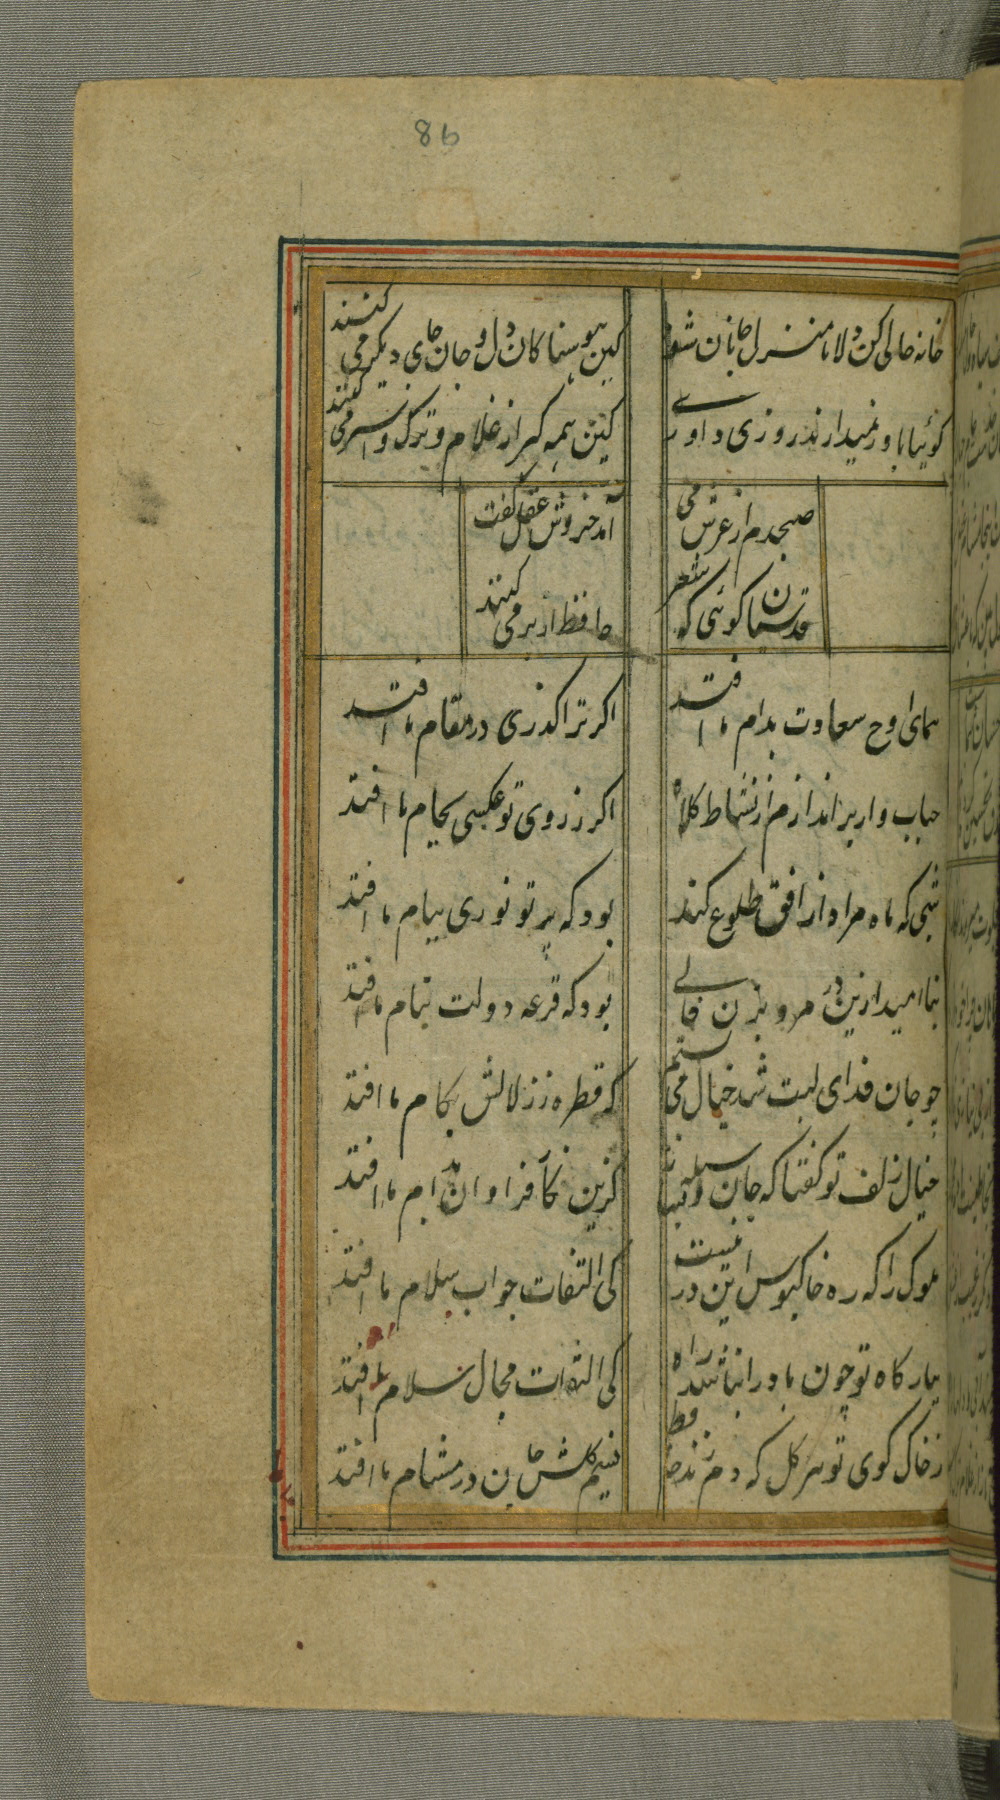 86
خانه خالی کن دلا تا منزل جانان شود
کین هوسناکان دل و جان جای دیگر می کنند
کوئیا باور نمیدارند روزی داوری
کین همه کبر از غلام و ترک و استر می کنند
صبحدم از عرش می
آمد خروش عقل کفت
قدسیان کوئی که شعر
حافظ از بر می کنند
همای اوج سعادت بدام ما افتد
اکر ترا کذری در مقام ما افتد
حباب وار براندازم از نشاط کلاه
اکر ز روی تو عکسی بجام ما افتد
شبی که ماه مراد از افق طلوع کند
بود که پرتو نوری ببام ما افتد
بنا امید ازین در مرو بزن فالی
بود که قرعه دولت بنام ما افتد
چو جان فدای لبت شد خیال می بستم
که قطره ز زلالش بکام ما افتد
خیال زلف تو کفتا که جان وسیله
کزین افتد
ملوک را که ره خاکبوس این در نیست
کی التفات جواب سلام ما افتد
ببارکاه تو چون باد را نباشد راه
کی التفات مجال سلام ما افتد
ز خاک کوی تو هر کل که دم زند حافظ
نسیم کلشن جان در مشام ما افتد